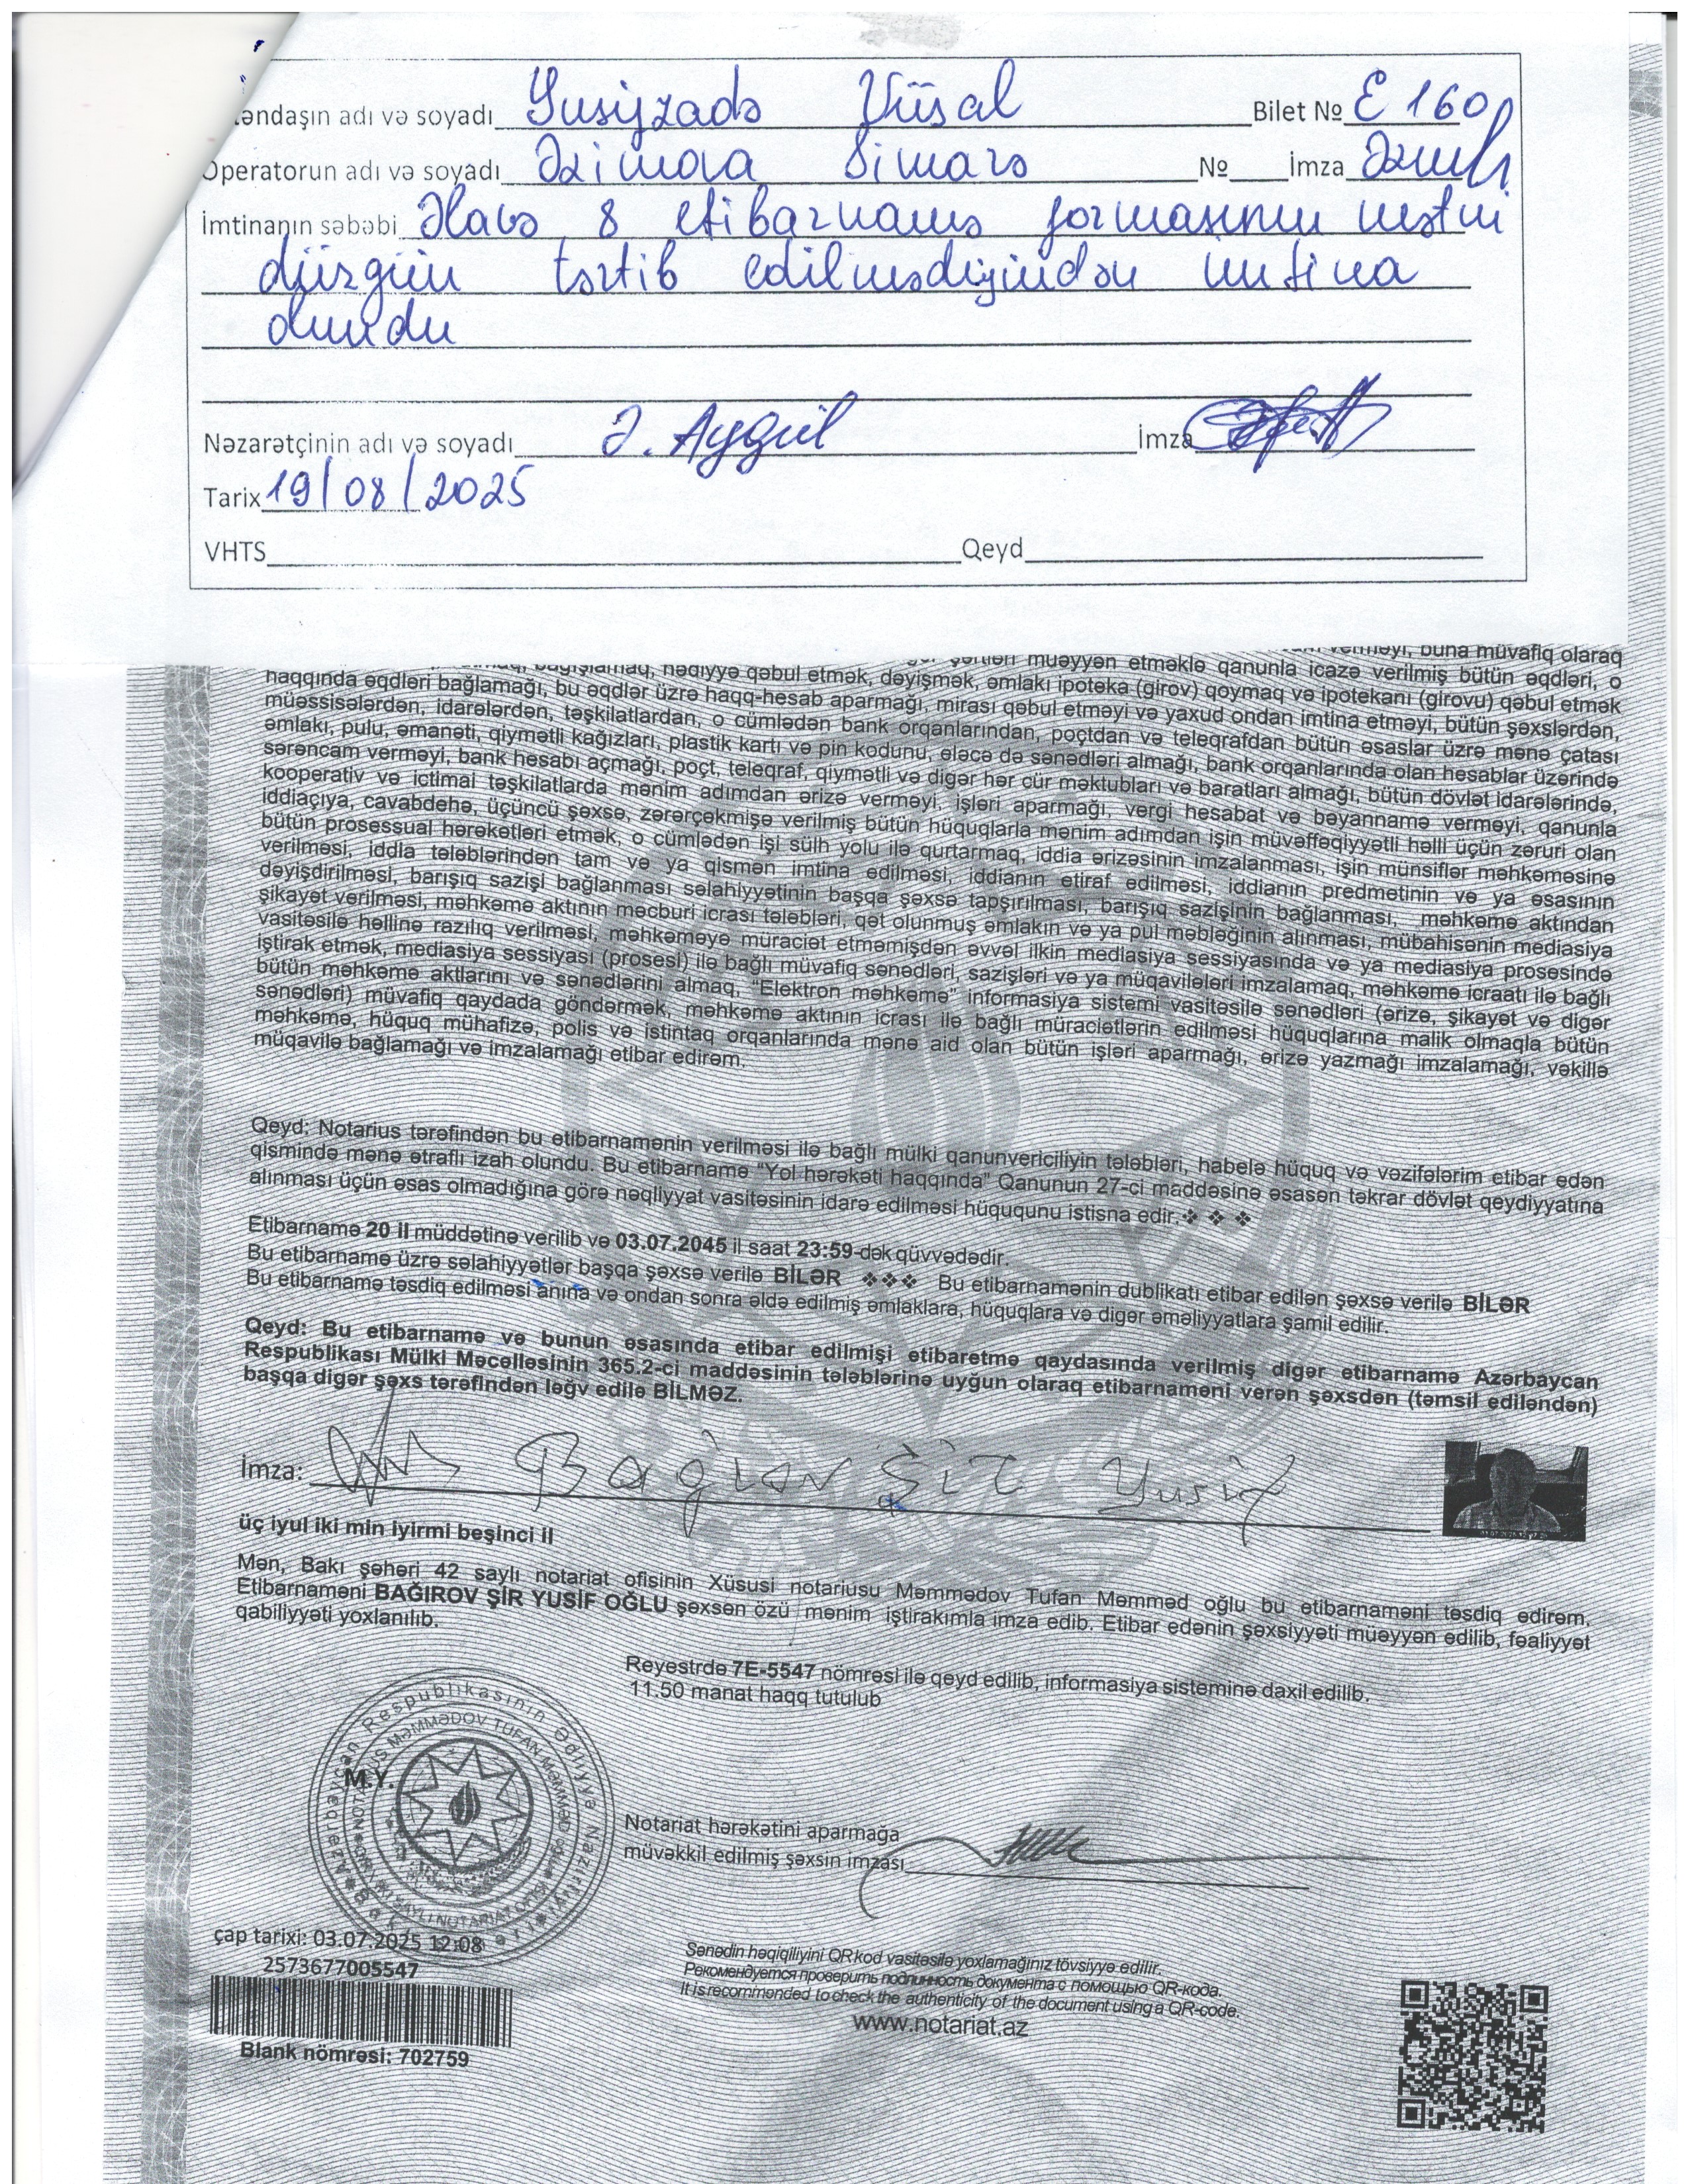 əndaşın adı və soyadı Yusifzadə Vüsal Bilet № E 160
Operatorun adı və soyadı Əzimova Simarə № İmza
İmtinanın səbəbi Əlavə 8 etibarnamə formasının mətni
düzgün tərtib edilmədiyindən imtina
olundu
Nəzarətçinin adı və soyadı Ə. Aygül İmza
Tarix 19/08/2025
VHTS Qeyd
verməyi, buna müvafiq olaraq
bağışlamaq, hədiyyə qəbul etmək, dəyişmək, əmlakı ipoteka (girov) qoymaq və ipotekanı (girovu) qəbul etmək
şərtləri müəyyən etməklə qanunla icazə verilmiş bütün əqdləri, o
haqqında əqdləri bağlamağı, bu əqdlər üzrə haqq-hesab aparmağı, mirası qəbul etməyi və yaxud ondan imtina etməyi, bütün şəxslərdən,
müəssisələrdən, idarələrdən, təşkilatlardan, o cümlədən bank orqanlarından, poçtdan və teleqrafdan bütün əsaslar üzrə mənə çatası
əmlakı, pulu, əmanəti, qiymətli kağızları, plastik kartı və pin kodunu, eləcə də sənədləri almağı, bank orqanlarında olan hesablar üzərində
sərəncam verməyi, bank hesabı açmağı, poçt, teleqraf, qiymətli və digər hər cür məktubları və baratları almağı, bütün dövlət idarələrində,
kooperativ və ictimai təşkilatlarda mənim adımdan ərizə verməyi, işləri aparmağı, vergi hesabat və bəyannamə verməyi, qanunla
iddiaçıya, cavabdehə, üçüncü şəxsə, zərərçəkmişə verilmiş bütün hüquqlarla mənim adımdan işin müvəffəqiyyətli həlli üçün zəruri olan
bütün prosessual hərəkətləri etmək, o cümlədən işi sülh yolu ilə qurtarmaq, iddia ərizəsinin imzalanması, işin münsiflər məhkəməsinə
verilməsi, iddia tələblərindən tam və ya qismən imtina edilməsi, iddianın etiraf edilməsi, iddianın predmetinin və ya əsasının
dəyişdirilməsi, barışıq sazişi bağlanması səlahiyyətinin başqa şəxsə tapşırılması, barışıq sazişinin bağlanması, məhkəmə aktından
şikayət verilməsi, məhkəmə aktının məcburi icrası tələbləri, qət olunmuş əmlakın və ya pul məbləğinin alınması, mübahisənin mediasiya
vasitəsilə həllinə razılıq verilməsi, məhkəməyə müraciət etməmişdən əvvəl ilkin mediasiya sessiyasında və ya mediasiya prosesində
iştirak etmək, mediasiya sessiyası (prosesi) ilə bağlı müvafiq sənədləri, sazişləri və ya müqavilələri imzalamaq, məhkəmə icraatı ilə bağlı
bütün məhkəmə aktlarını və sənədlərini almaq, "Elektron məhkəmə" informasiya sistemi vasitəsilə sənədləri (ərizə, şikayət və digər
sənədləri) müvafiq qaydada göndərmək, məhkəmə aktının icrası ilə bağlı müraciətlərin edilməsi hüquqlarına malik olmaqla bütün
məhkəmə, hüquq mühafizə, polis və istintaq orqanlarında mənə aid olan bütün işləri aparmağı, ərizə yazmağı imzalamağı, vəkillə
müqavilə bağlamağı və imzalamağı etibar edirəm.
Qeyd: Notarius tərəfindən bu etibarnamənin verilməsi ilə bağlı mülki qanunvericiliyin tələbləri, habelə hüquq və vəzifələrim etibar edən
qismində mənə ətraflı izah olundu. Bu etibarnamə "Yol hərəkəti haqqında" Qanunun 27-ci maddəsinə əsasən təkrar dövlət qeydiyyatına
alınması üçün əsas olmadığına görə nəqliyyat vasitəsinin idarə edilməsi hüququnu istisna edir.❖ ❖ ❖
Etibarnamə 20 il müddətinə verilib və 03.07.2045 il saat 23:59-dək qüvvədədir.
Bu etibarnamə üzrə səlahiyyətlər başqa şəxsə verilə BİLƏR ❖❖❖ Bu etibarnamənin dublikatı etibar edilən şəxsə verilə BİLƏR
Bu etibarnamə təsdiq edilməsi anına və ondan sonra əldə edilmiş əmlaklara, hüquqlara və digər əməliyyatlara şamil edilir.
Qeyd: Bu etibarnamə və bunun əsasında etibar edilmişi etibaretmə qaydasında verilmiş digər etibarnamə Azərbaycan
Respublikası Mülki Məcəlləsinin 365.2-ci maddəsinin tələblərinə uyğun olaraq etibarnaməni verən şəxsdən (təmsil ediləndən)
başqa digər şəxs tərəfindən ləğv edilə BİLMƏZ.
İmza: Bağırov Şir Yusif
üç iyul iki min iyirmi beşinci il
Mən, Bakı şəhəri 42 saylı notariat ofisinin Xüsusi notariusu Məmmədov Tufan Məmməd oğlu bu etibarnaməni təsdiq edirəm.
Etibarnaməni BAĞIROV ŞİR YUSİF OĞLU şəxsən özü mənim iştirakımla imza edib. Etibar edənin şəxsiyyəti müəyyən edilib, fəaliyyət
qabiliyyəti yoxlanılıb.
Reyestrdə 7E-5547 nömrəsi ilə qeyd edilib, informasiya sisteminə daxil edilib.
11.50 manat haqq tutulub
Azərbaycan Respublikasının Ədliyyə Nazirliyi
NOTARIUS MƏMMƏDOV TUFAN MƏMMƏD
M.Y.
Notariat hərəkətini aparmağa
müvəkkil edilmiş şəxsin imzası
çap tarixi: 03.07.2025 12:08
2573677005547
Blank nömrəsi: 702759
Sənədin həqiqiliyini QR kod vasitəsilə yoxlamağınız tövsiyyə edilir.
Рекомендуется проверить подлинность документа с помощью QR-кода.
It is recommended to check the authenticity of the document using a QR-code.
www.notariat.az